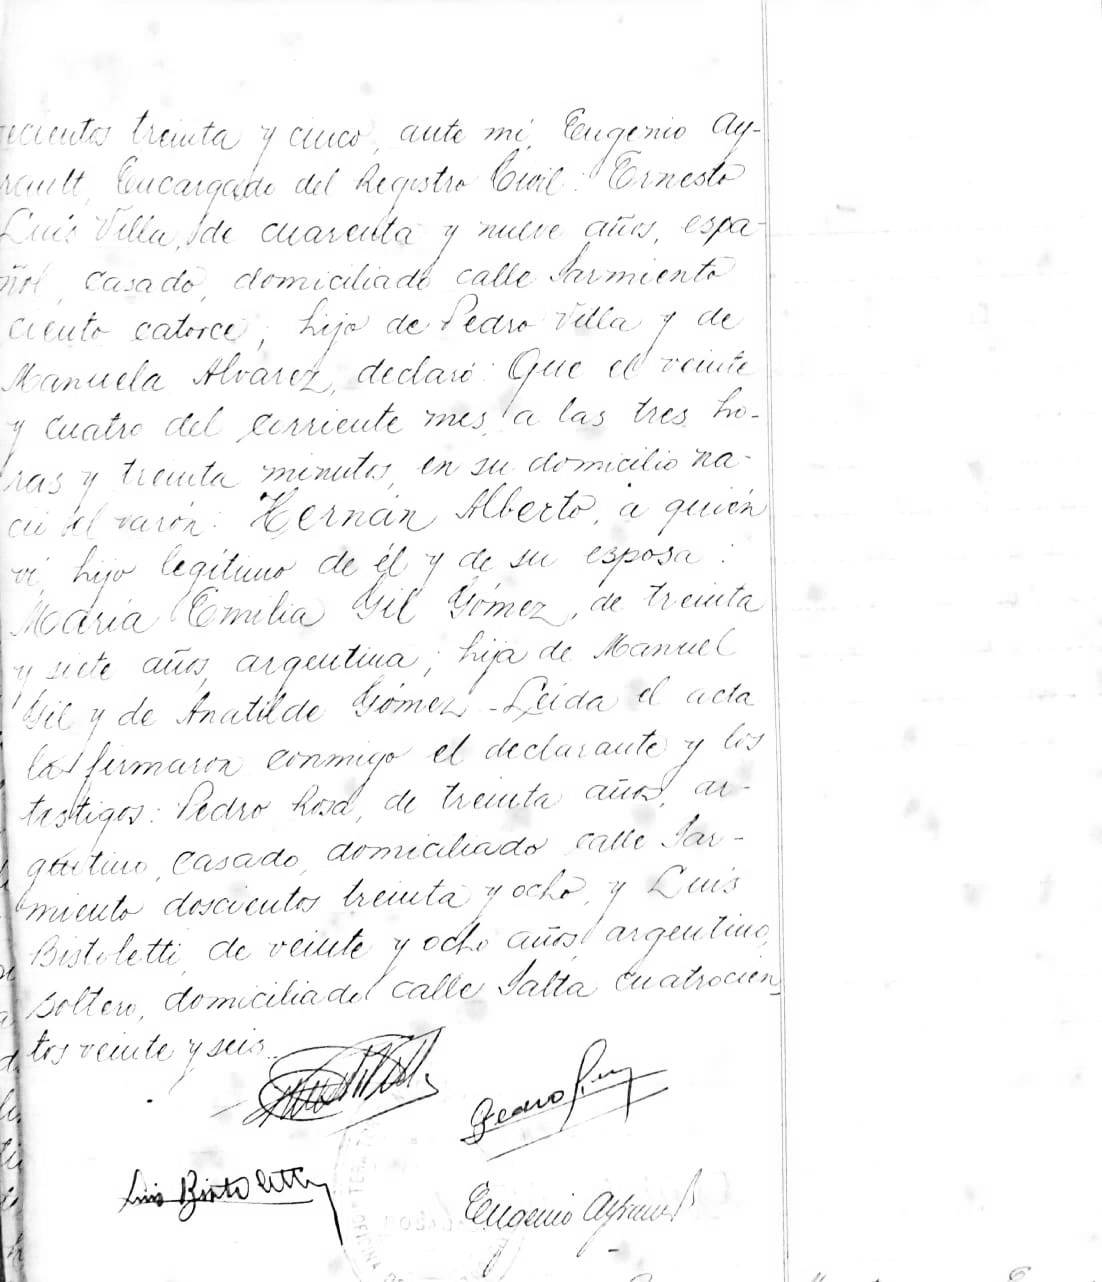 ecientos treinta y cinco, ante mí, Eugenio Ay-
rault, Encargado del Registro Civil: Ernesto
Luis Villa, de cuarenta y nueve años, espa-
ñol, casado, domiciliado calle Sarmiento
ciento catorce, hijo de Pedro Villa y de
Manuela Alvarez, declaró: Que el veinte
y cuatro del corriente mes, a las tres ho-
ras y treinta minutos, en su domicilio na-
ció el varón: Hernán Alberto, a quién
ví, hijo legítimo de él y de su esposa:
María Emilia Gil Gómez, de treinta
y siete años, argentina, hija de Manuel
Gil y de Anatilde Gómez - Leida el acta
la firmaron conmigo el declarante y los
testigos: Pedro Rosa, de treinta años, ar-
gentino, casado, domiciliado calle Sar-
miento doscientos treinta y ocho, y Luis
Bistoletti, de veinte y ocho años, argentino,
soltero, domiciliado calle Salta cuatrocien
tos veinte y seis.
Pedro
Luis Bistoletti
Eugenio Ayrault